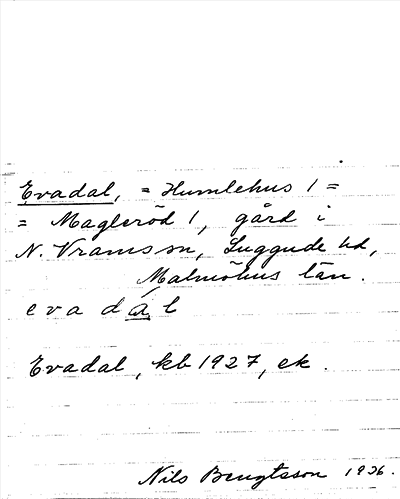 Evadal, = Humlehus 1 =
= Magleröd 1, gård i
N. Vrams sn, Luggude hd,
Malmöhus län.
e v a d á l
Evadal, kb 1927, ek.
Nils Bengtsson 1936.